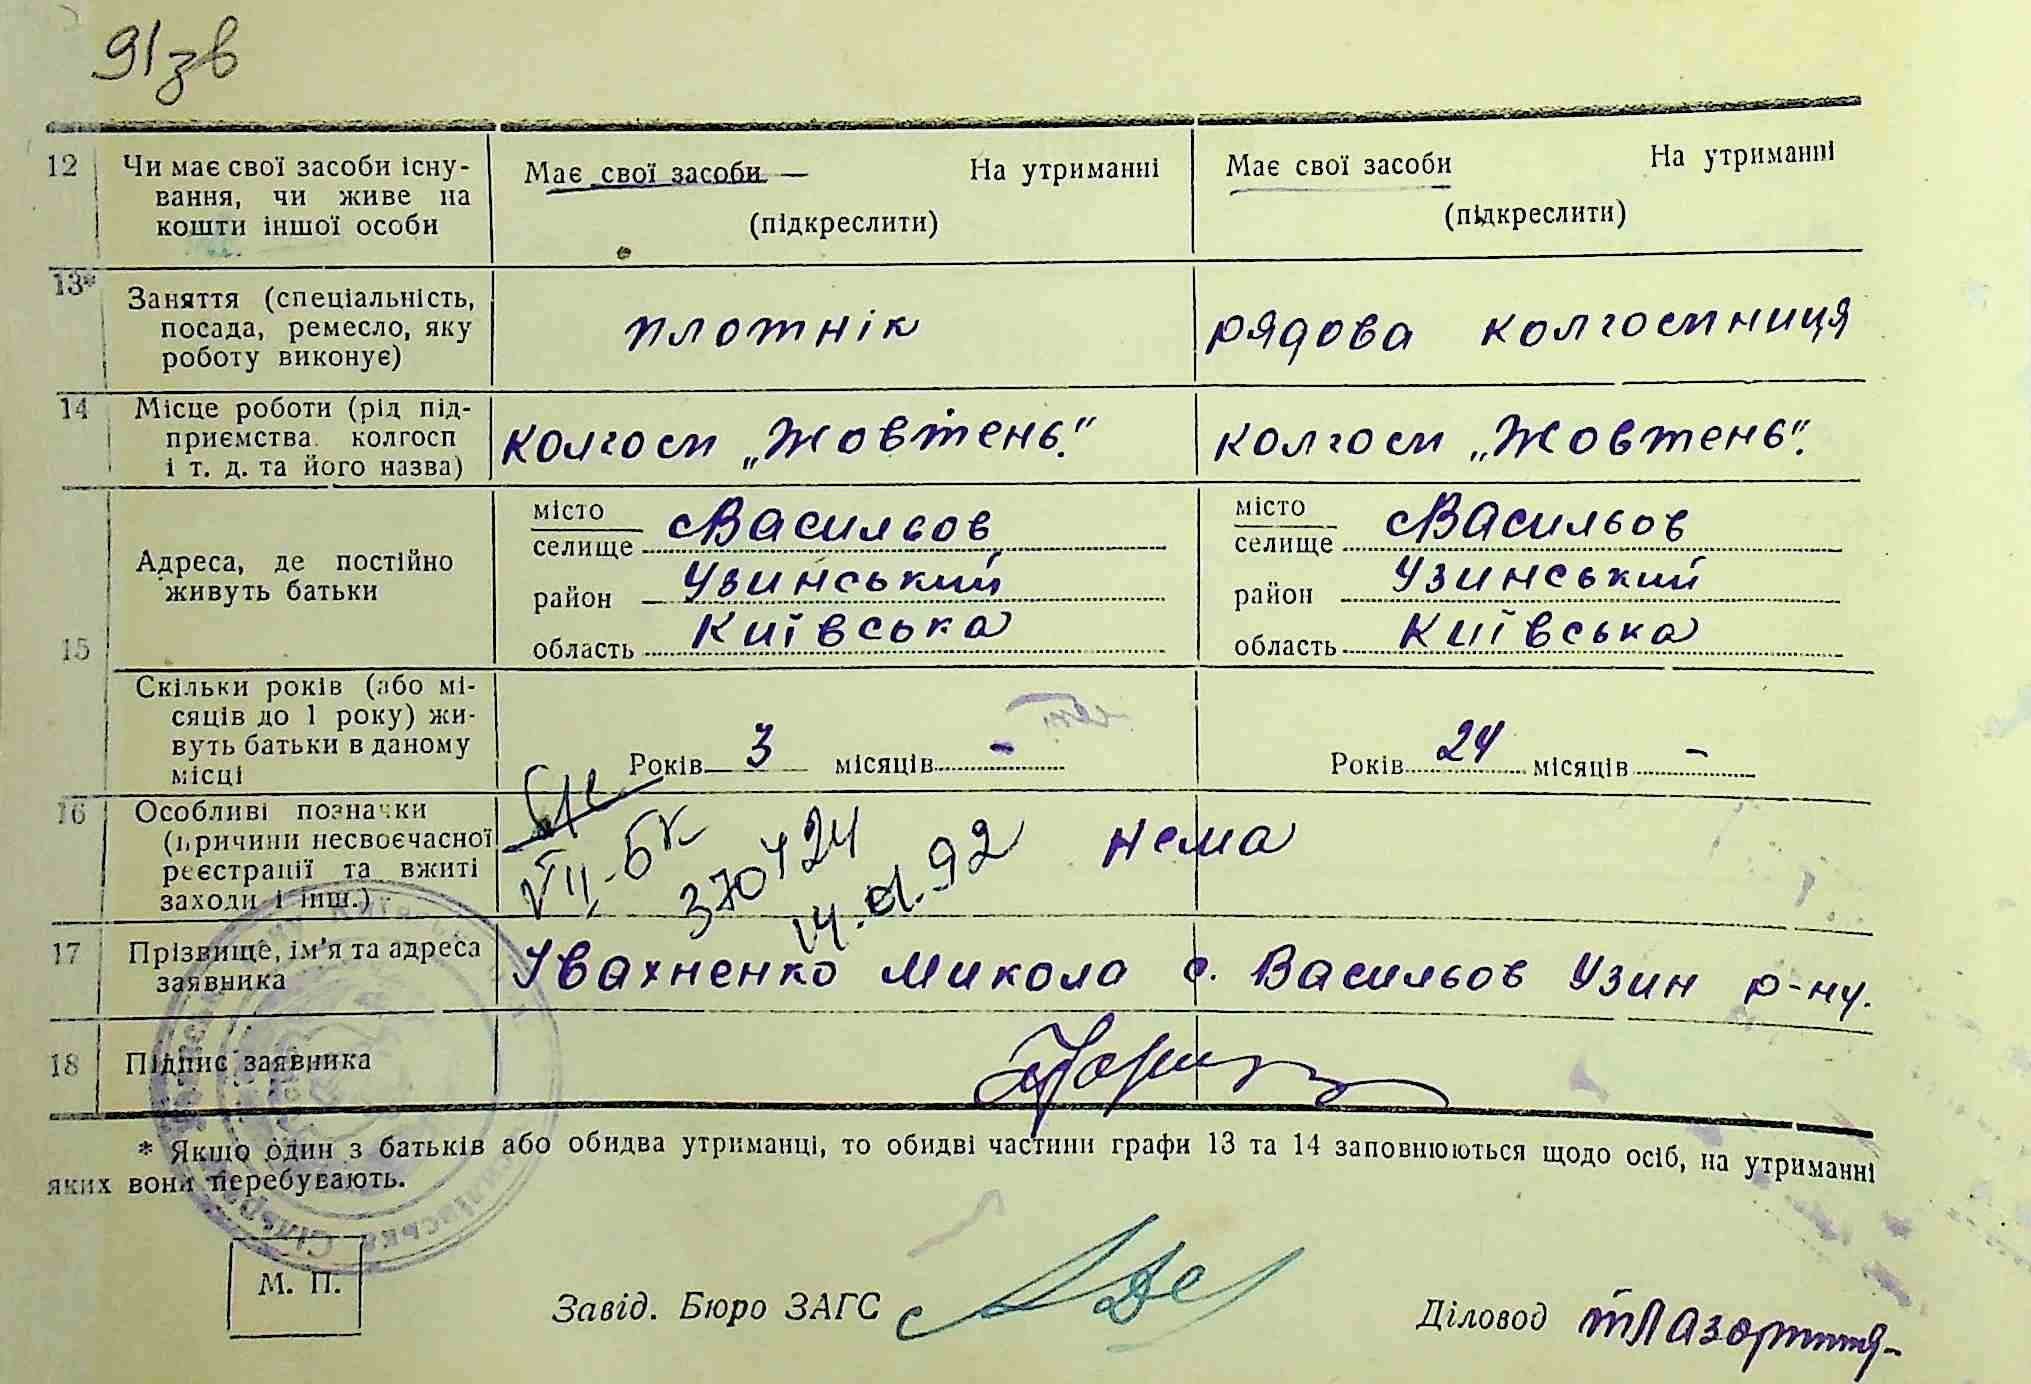 91зв
12 Чи має свої засоби існу- Має свої засоби — На утриманні Має свої засоби На утриманні
вання, чи живе на
кошти іншої особи (підкреслити) (підкреслити)
13* Заняття (спеціальність,
посада, ремесло, яку плотнік рядова колгоспниця
роботу виконує)
14 Місце роботи (рід під-
приємства, колгосп колгосп „Жовтень". колгосп „Жовтень".
і т. д. та його назва)
місто місто
селище с Васильов селище с Васильов
Адреса, де постійно
живуть батьки район Узинський район Узинський
15 область Київська область Київська
Скільки років (або мі-
сяців до 1 року) жи-
вуть батьки в даному
місці Років 3 місяців - Років 24 місяців -
16 Особливі позначки
(причини несвоєчасної VII-БК нема
реєстрації та вжиті 370424
заходи і інш.) 14.01.92
17 Прізвище, ім'я та адреса
заявника Івахненко Микола с. Васильов Узин р-ну.
18 Підпис заявника
* Якщо один з батьків або обидва утриманці, то обидві частини графи 13 та 14 заповнюються щодо осіб, на утриманні
яких вони перебувають.
М. П.
Завід. Бюро ЗАГС
Діловод